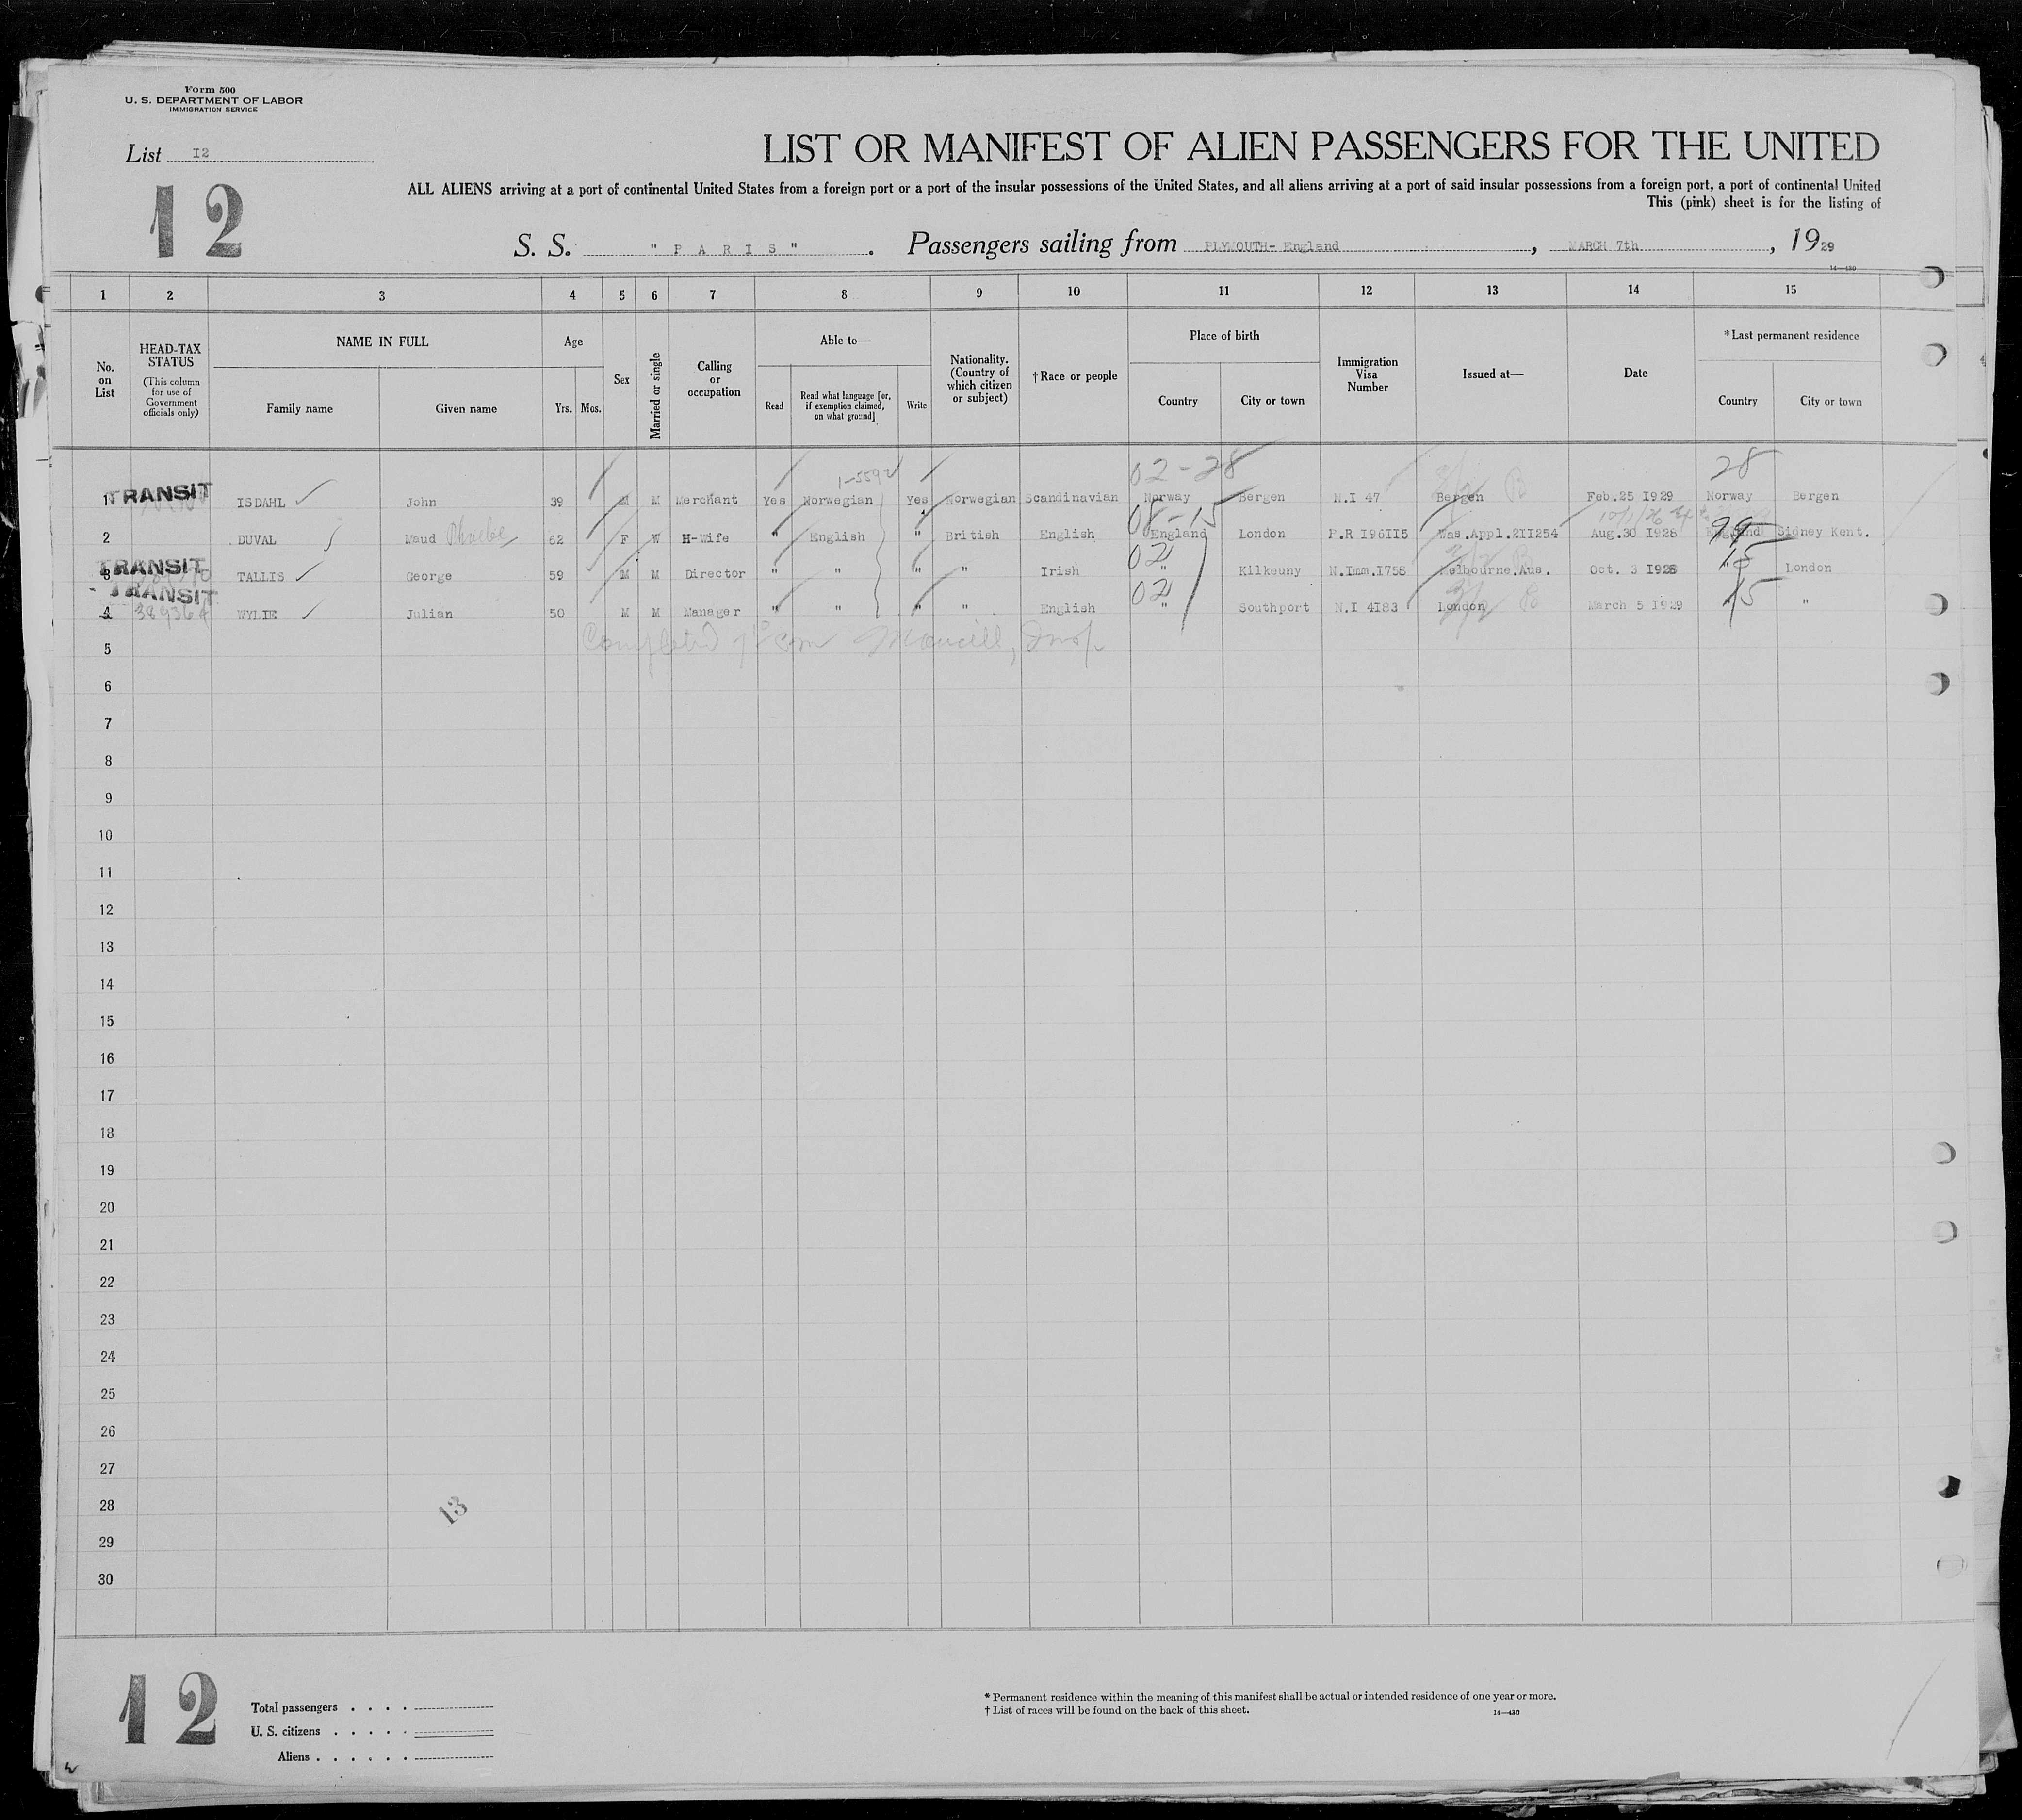 Form 500
U. S. DEPARTMENT OF LABOR
IMMIGRATION SERVICE
List I2
12
LIST OR MANIFEST OF ALIEN PASSENGERS FOR THE UNITED
ALL ALIENS arriving at a port of continental United States from a foreign port or a port of the insular possessions of the United States, and all aliens arriving at a port of said insular possessions from a foreign port, a port of continental United
This (pink) sheet is for the listing of
S. S. "PARIS". Passengers sailing from PLYMOUTH- England, MARCH 7th, 1929
14—430
1 2 3 4 5 6 7 8 9 10 11 12 13 14 15
No. on List
HEAD-TAX STATUS (This column for use of Government officials only)
NAME IN FULL Family name Given name
Age Yrs. Mos.
Sex
Married or single
Calling or occupation
Able to— Read Read what language [or, if exemption claimed, on what ground] Write
Nationality. (Country of which citizen or subject)
†Race or people
Place of birth Country City or town
Immigration Visa Number
Issued at—
Date
*Last permanent residence Country City or town
02-28 28
1 TRANSIT ISDAHL John 39 M M Merchant Yes Norwegian Yes Norwegian Scandinavian Norway Bergen N.I 47 Bergen Feb.25 I929 Norway Bergen
08-15
2 DUVAL Maud Phoebe 62 F W H-Wife " English " British English England London P.R I96II5 Was.Appl.2II254 Aug.30 I928 England 99 Sidney Kent.
02 15
3 TRANSIT TALLIS George 59 M M Director " " " " Irish " Kilkeuny N.Imm.I758 Melbourne.Aus. Oct. 3 I928 " London
02 15
4 TRANSIT 38936A WYLIE Julian 50 M M Manager " " " " English " Southport N.I 4I83 London March 5 I929 " "
5 Completed
6
7
8
9
10
11
12
13
14
15
16
17
18
19
20
21
22
23
24
25
26
27
28
13
29
30
12
Total passengers . . . .
U. S. citizens . . . . .
Aliens . . . . . .
* Permanent residence within the meaning of this manifest shall be actual or intended residence of one year or more.
† List of races will be found on the back of this sheet.
14—430